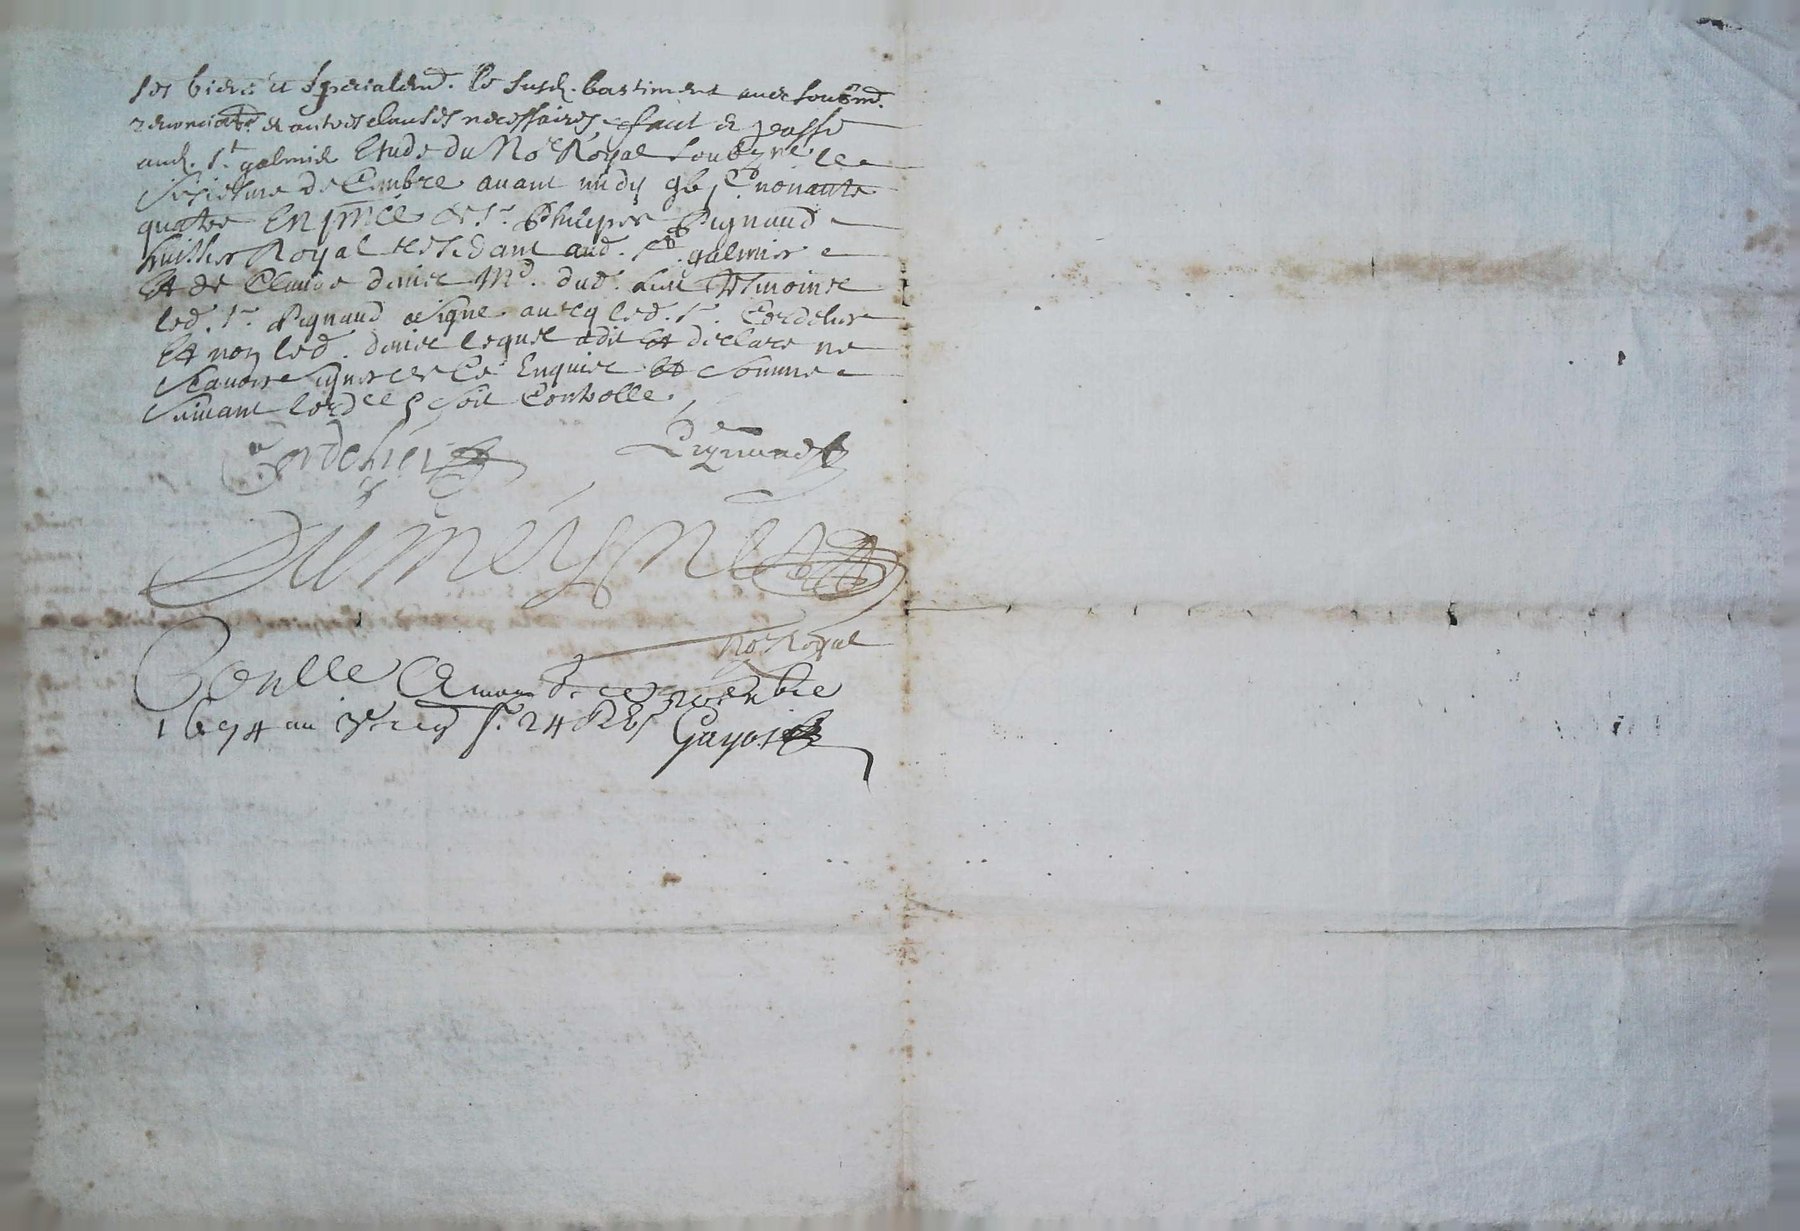 ses biens et specialemt. le susd. bastiment avec soubmd.
renonciatns. et autres clauses necessaires fait et passé
aud. St. galmier Etude du No.re Royal soubzne le
siziesme decembre avant midy gbjC nonante
quatre En pnce de Sr. Philipes Pignaud
huissier Royal residant aud. St. galmier
Et de Claude Md. dud. lieu tesmoins
led. Sr. Pignaud a signé avecq led. Sr. Cordelier
Et non led. lequel a dit Et declaré ne
scavoir signer de ce Enquier Et sommé
suivant lord.ce soit Controllé.
Cordelier Pignaud
Dumeynet
No.re Royal
Conlle A decembre
1694 au reg f. 24 Gayot